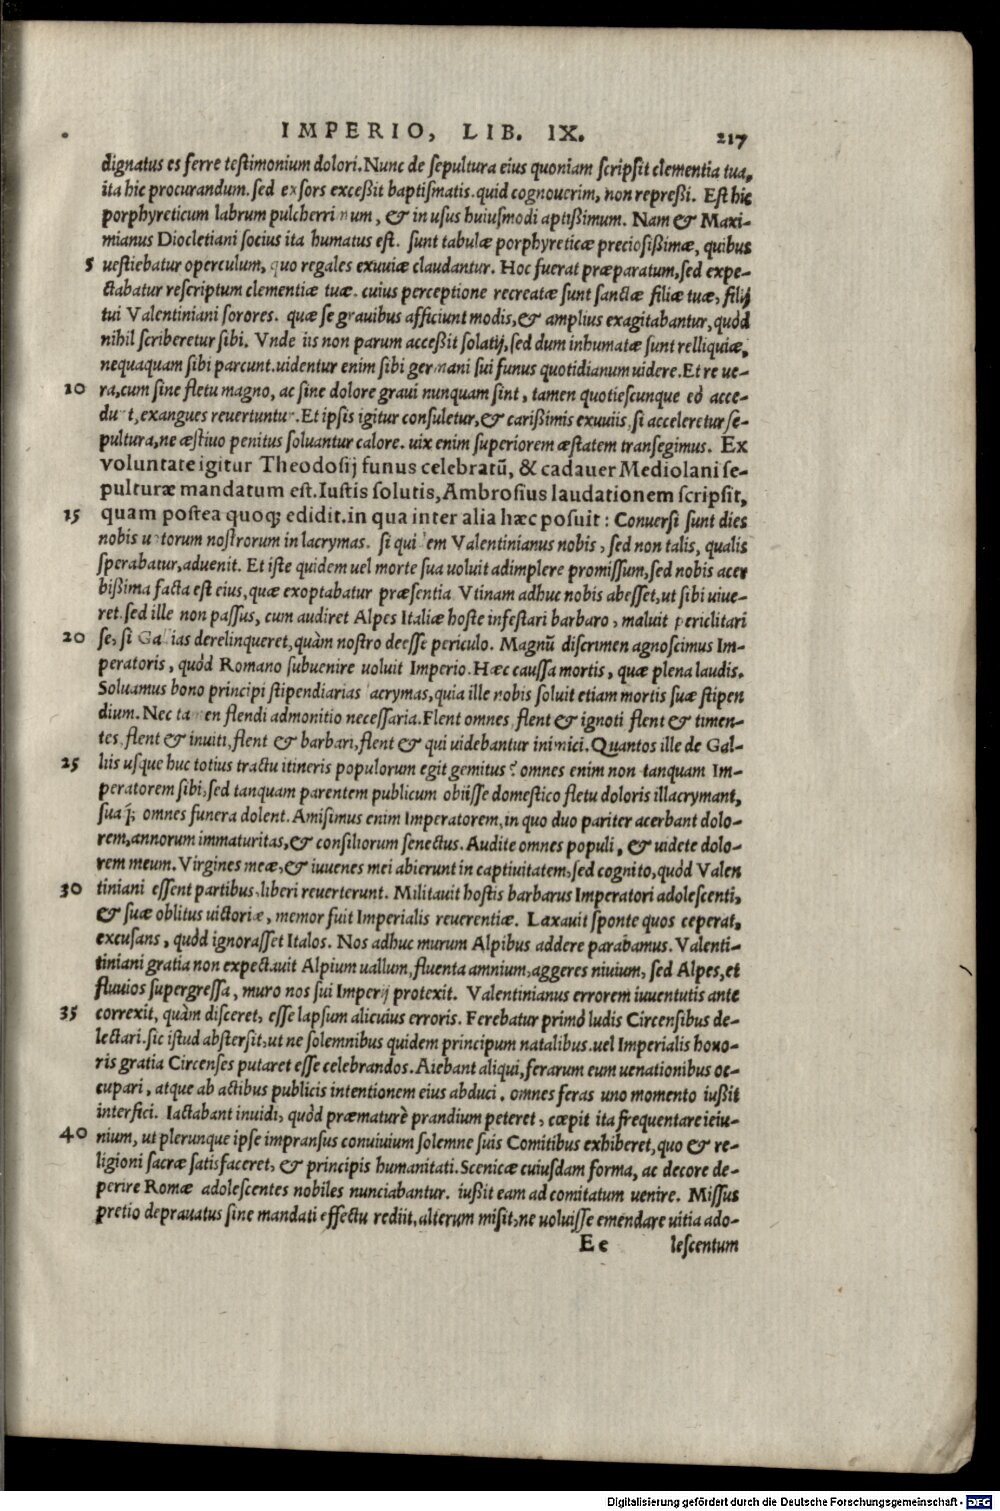 IMPERIO, LIB. IX. 217
dignatus es ferre testimonium dolori. Nunc de sepultura eius quoniam scripsit clementia tua,
ita hic procurandum. sed exsors exceßit baptismatis. quid cognouerim, non repreßi. Est hic
porphyreticum labrum pulcherri num, & in usus huiusmodi aptißimum. Nam & Maxi-
mianus Diocletiani socius ita humatus est. sunt tabulæ porphyreticæ preciosißimæ, quibus
5 uestiebatur operculum, quo regales exuuiæ claudantur. Hoc fuerat præparatum, sed expe-
ctabatur rescriptum clementiæ tuæ. cuius perceptione recreatæ sunt sanctæ filiæ tuæ, filij
tui Valentiniani sorores. quæ se grauibus afficiunt modis, & amplius exagitabantur, quòd
nihil scriberetur sibi. Vnde iis non parum acceßit solatij, sed dum inhumatæ sunt relliquiæ,
nequaquam sibi parcunt. uidentur enim sibi germani sui funus quotidianum uidere. Et re ue-
10 ra, cum sine fletu magno, ac sine dolore graui nunquam sint, tamen quotiescunque eò acce-
du t, exangues reuertuntur. Et ipsis igitur consuletur, & carißimis exuuiis, si acceleretur se-
pultura, ne æstiuo penitus soluantur calore. uix enim superiorem æstatem transegimus. Ex
voluntate igitur Theodosij funus celebratũ, & cadauer Mediolani se-
pulturæ mandatum est. Iustis solutis, Ambrosius laudationem scripsit,
15 quam postea quoq; edidit. in qua inter alia hæc posuit: Conuersi sunt dies
nobis uotorum nostrorum in lacrymas. si qui em Valentinianus nobis, sed non talis, qualis
sperabatur, aduenit. Et iste quidem uel morte sua uoluit adimplere promissum, sed nobis acer
bißima facta est eius, quæ exoptabatur præsentia. Vtinam adhuc nobis abesset, ut sibi uiue-
ret. sed ille non passus, cum audiret Alpes Italiæ hoste infestari barbaro, maluit periclitari
20 se, si Gallias derelinqueret, quàm nostro deesse periculo. Magnũ discrimen agnoscimus Im-
peratoris, quòd Romano subuenire uoluit Imperio. Hæc caussa mortis, quæ plena laudis.
Soluamus bono principi stipendiarias lacrymas, quia ille nobis soluit etiam mortis suæ stipen
dium. Nec tamen flendi admonitio necessaria. Flent omnes, flent & ignoti flent & timen-
tes, flent & inuiti, flent & barbari, flent & qui uidebantur inimici. Quantos ille de Gal-
25 liis usque huc totius tractu itineris populorum egit gemitus? omnes enim non tanquam Im-
peratorem sibi, sed tanquam parentem publicum obiisse domestico fletu doloris illacrymant,
suaq́; omnes funera dolent. Amisimus enim Imperatorem, in quo duo pariter acerbant dolo-
rem, annorum immaturitas, & consiliorum senectus. Audite omnes populi, & uidete dolo-
rem meum. Virgines meæ, & iuuenes mei abierunt in captiuitatem, sed cognito, quòd Valen
30 tiniani essent partibus, liberi reuerterunt. Militauit hostis barbarus Imperatori adolescenti,
& suæ oblitus uictoriæ, memor fuit Imperialis reuerentiæ. Laxauit sponte quos ceperat,
excusans, quòd ignorasset Italos. Nos adhuc murum Alpibus addere parabamus. Valenti-
tiniani gratia non expectauit Alpium uallum, fluenta amnium, aggeres niuium, sed Alpes, et
fluuios supergressa, muro nos sui Imperij protexit. Valentinianus errorem iuuentutis ante
35 correxit, quàm disceret, esse lapsum alicuius erroris. Ferebatur primò ludis Circensibus de-
lectari. sic istud abstersit, ut ne solemnibus quidem principum natalibus. uel Imperialis hono-
ris gratia Circenses putaret esse celebrandos. Aiebant aliqui, ferarum eum uenationibus oc-
cupari, atque ab actibus publicis intentionem eius abduci. omnes feras uno momento iußit
interfici. Iactabant inuidi, quòd præmaturè prandium peteret, cœpit ita frequentare ieiu-
40 nium, ut plerunque ipse impransus conuiuium solemne suis Comitibus exhiberet, quo & re-
ligioni sacræ satisfaceret, & principis humanitati. Scenicæ cuiusdam forma, ac decore de-
perire Romæ adolescentes nobiles nunciabantur. iußit eam ad comitatum uenire. Missus
pretio deprauatus sine mandati effectu rediit, alterum misit, ne uoluisse emendare uitia ado-
Ee lescentum
Digitalisierung gefördert durch die Deutsche Forschungsgemeinschaft - DFG